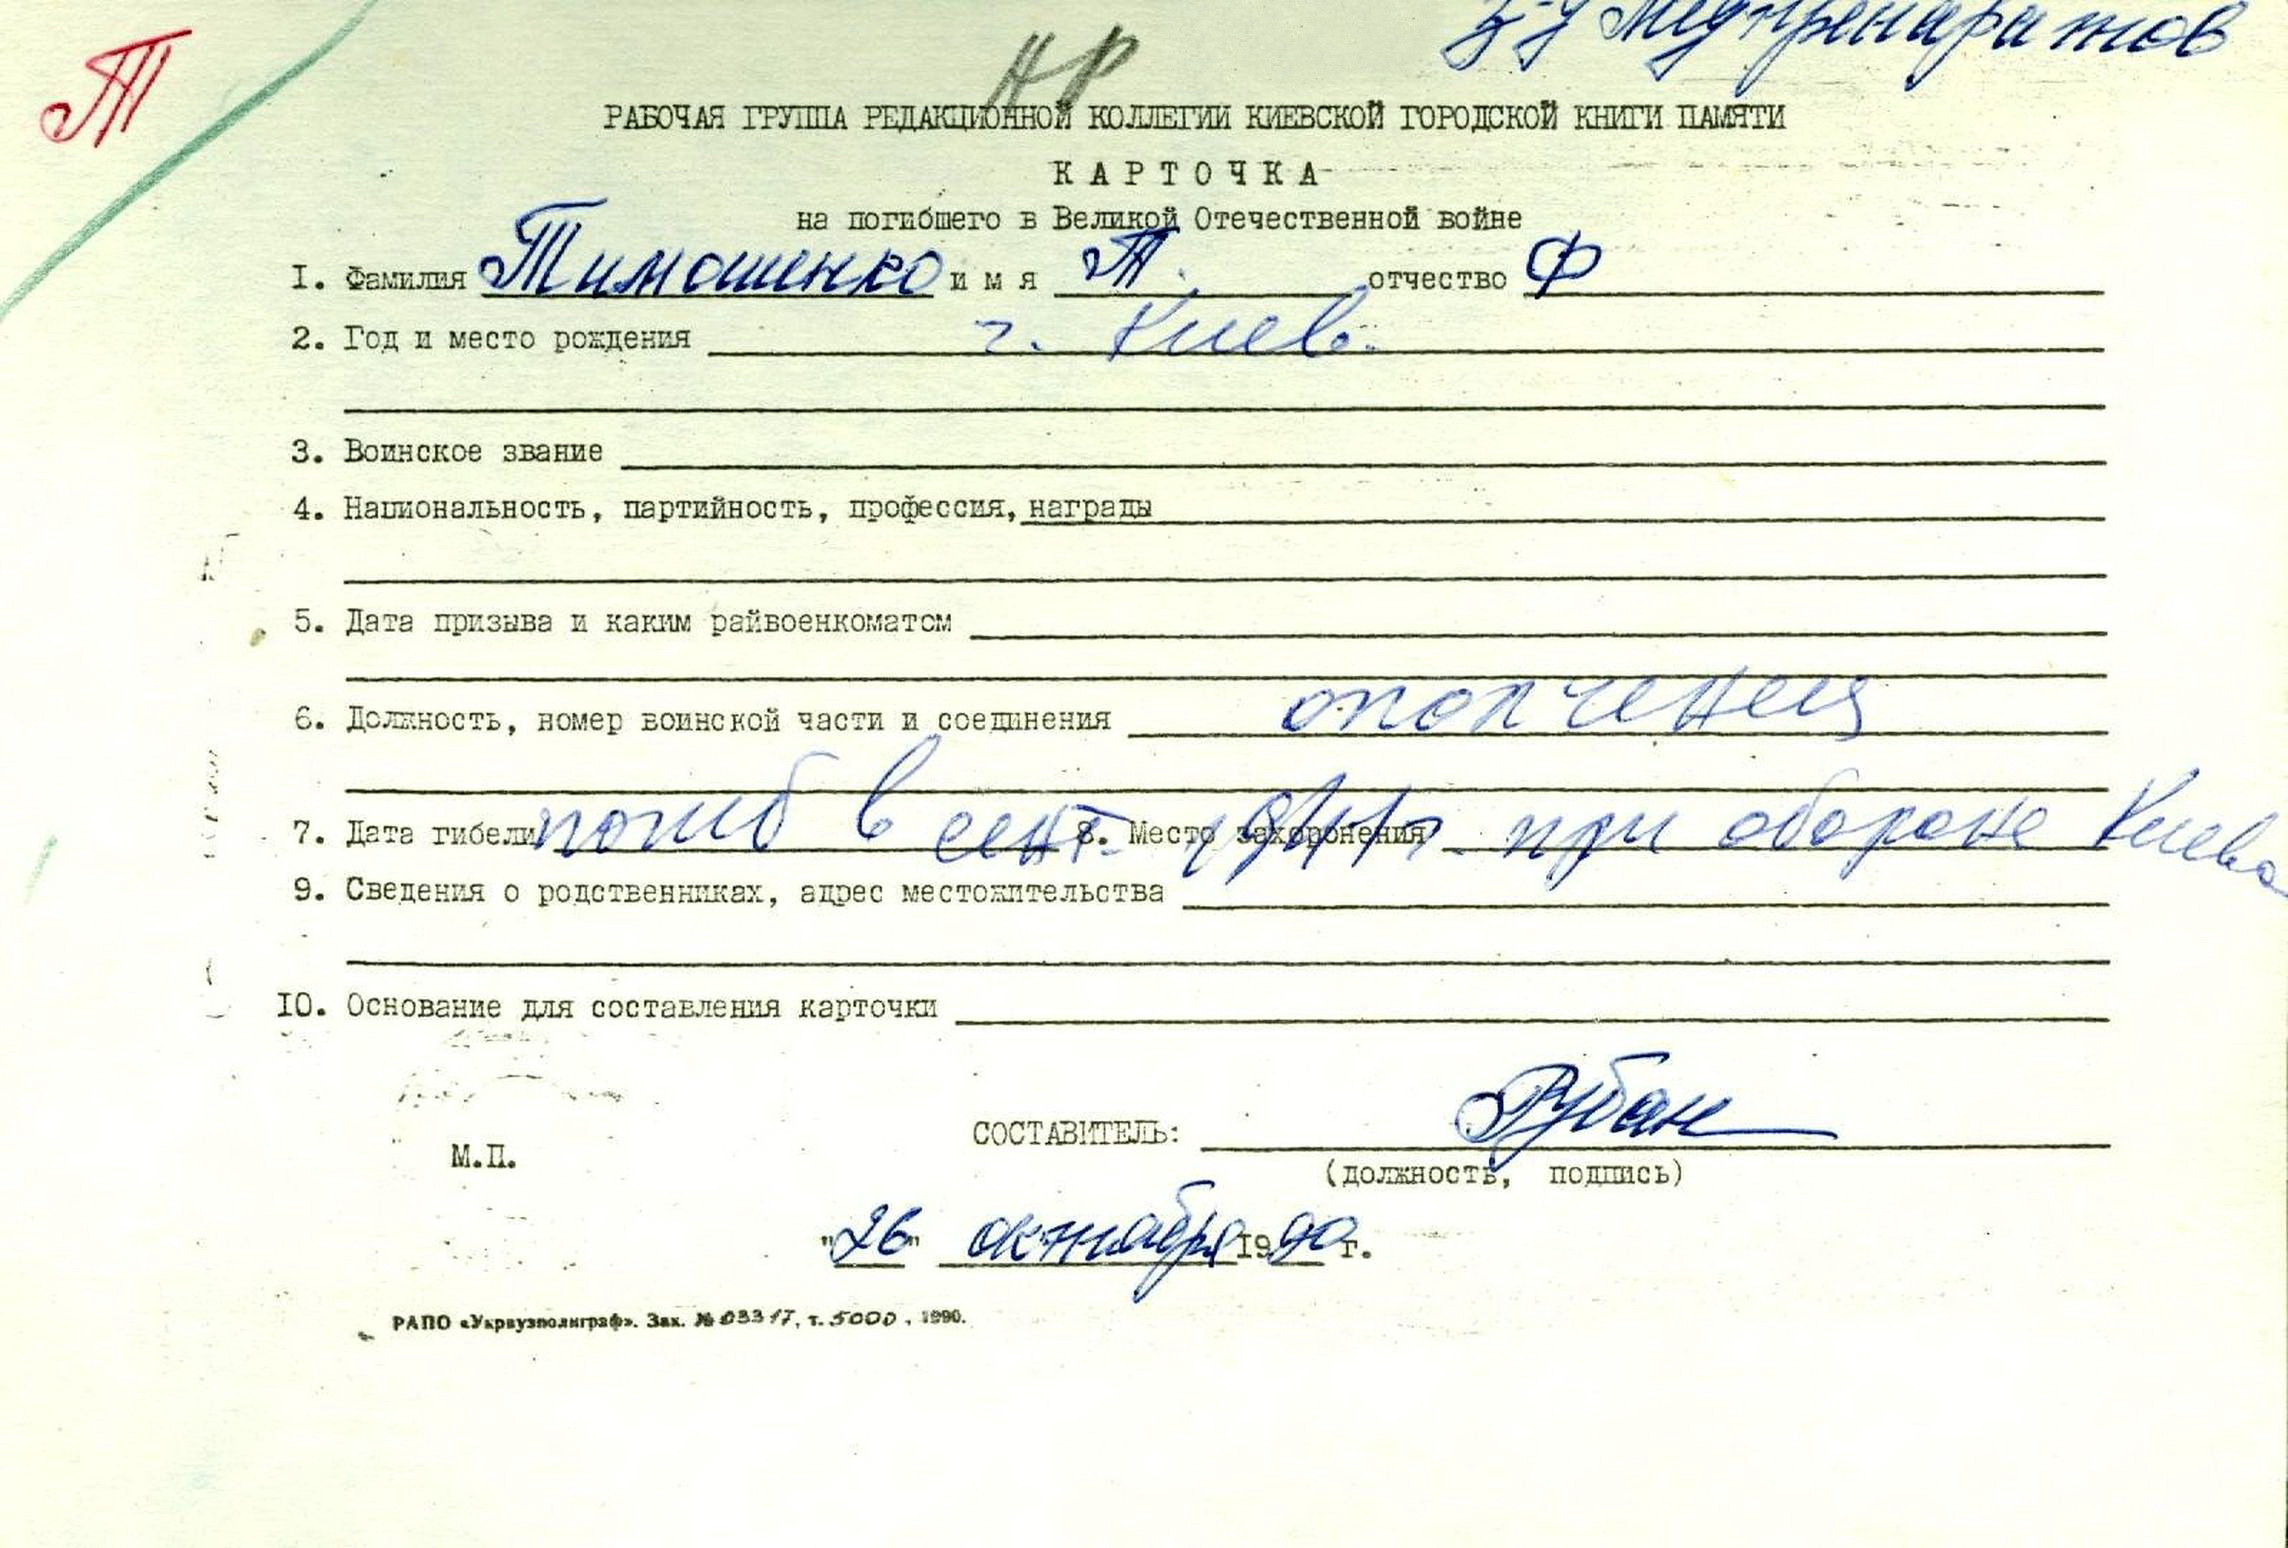 з-д Медпрепаратов
Т
НР
РАБОЧАЯ ГРУППА РЕДАКЦИОННОЙ КОЛЛЕГИИ КИЕВСКОЙ ГОРОДСКОЙ КНИГИ ПАМЯТИ
КАРТОЧКА
на погибшего в Великой Отечественной войне
I. Фамилия Тимошенко имя Т. отчество Ф
2. Год и место рождения г. Киев.
3. Воинское звание
4. Национальность, партийность, профессия, награды
5. Дата призыва и каким райвоенкоматом
6. Должность, номер воинской части и соединения ополченец
7. Дата гибели погиб в сент. 1941г. 8. Место захоронения при обороне Киева
9. Сведения о родственниках, адрес местожительства
IO. Основание для составления карточки
СОСТАВИТЕЛЬ: Рубан
М.П.
(должность, подпись)
"26" октября 1990 г.
РАПО «Укрвузполиграф». Зак. № 03317, т. 5000, 1990.